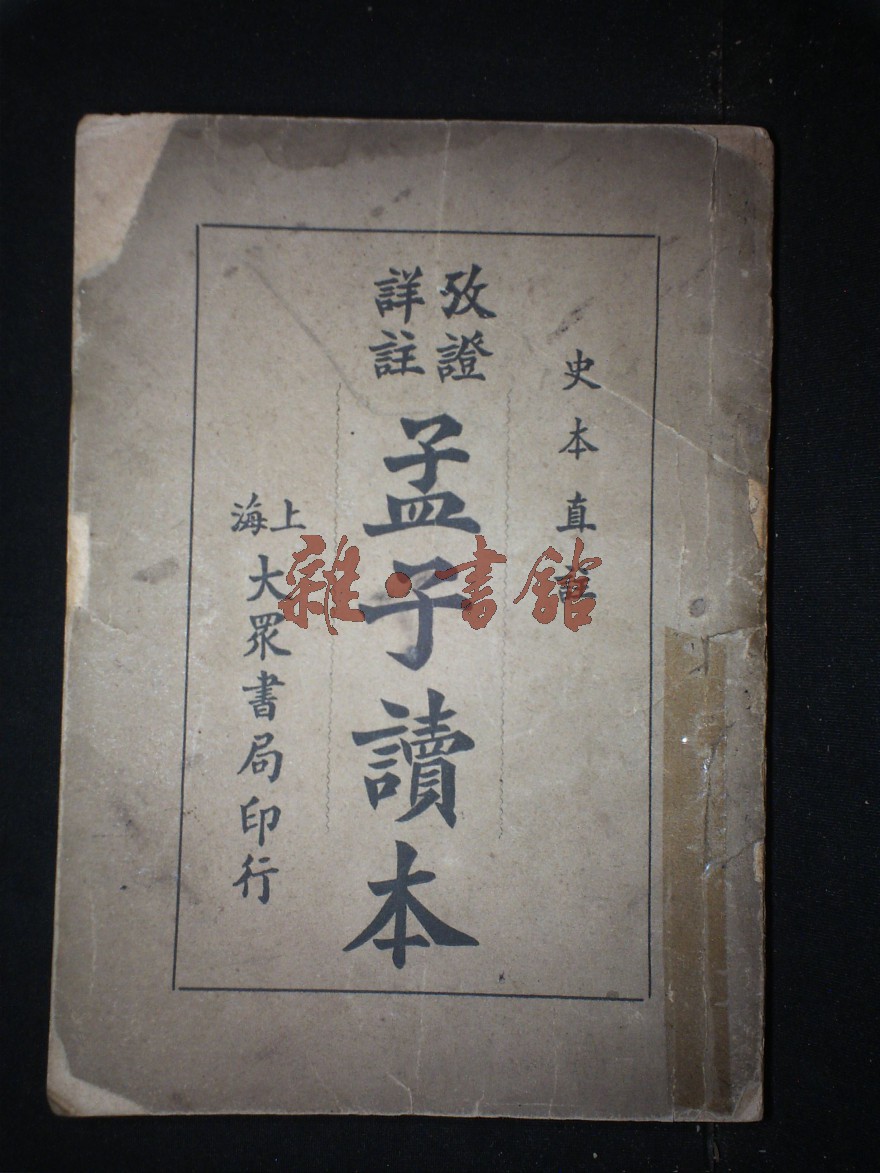 史本直
攷證
詳註
孟子讀本
上海
大眾書局印行
雜·書館